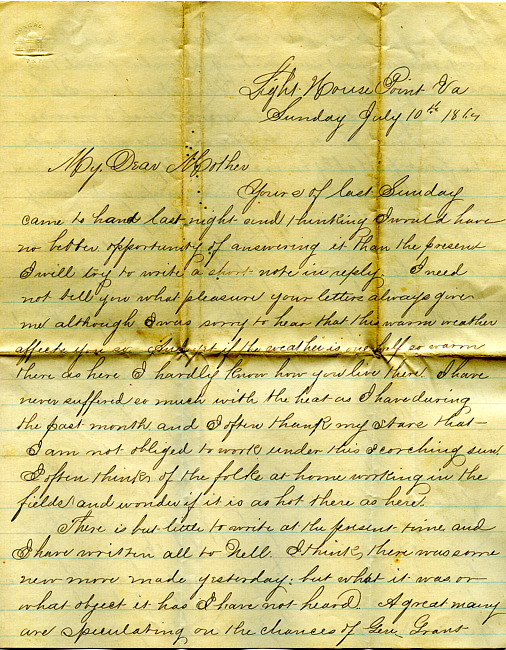 Light House Point Va
Sunday July 10th 1864
My Dear Mother
Yours of last Sunday
came to hand last night and thinking I would have
no better opportunity of answering it than the present
I will try to write a short note in reply. I need
not tell you what pleasure your letters always give
me although I was sorry to hear that this warm weather
affects you so. And yet if the weather is one half so warm
there as here I hardly know how you live there. I have
never suffered so much with the heat as I have during
the past month and I often thank my stars that
I am not obliged to work under this scorching sun.
I often think of the folks at home working in the
fields and wonder if it is as hot there as here.
There is but little to write at the present time and
I have written all to Nell. I think there was some
new move made yesterday: but what it was or
what object it has I have not heard. A great many
are speculating on the chances of Gen. Grant